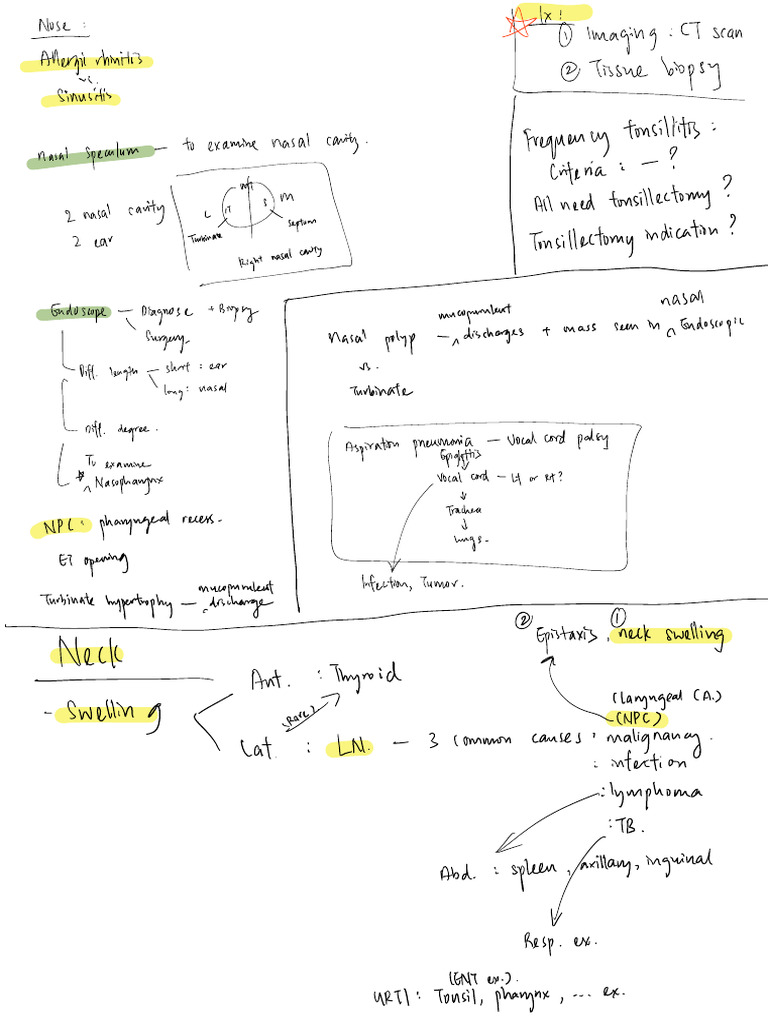 Nose :
Allergic rhinitis
vs.
Sinusitis
Nasal speculum — to examine nasal cavity.
2 nasal cavity
2 ear
L
IT
S
M
Turbinate
Septum
Right nasal cavity
Endoscope — Diagnose + Biopsy
Surgery
Diff. length — short : ear
long : nasal
Diff. degree.
To examine
* ^ Nasopharynx
NPC : pharyngeal recess.
ET opening
mucopurulent
Turbinate hypertrophy — ^ discharge
Ix :
① Imaging : CT scan
② Tissue biopsy
Frequency tonsillitis :
Criteria : — ?
All need tonsillectomy ?
Tonsillectomy indication ?
mucopurulent
nasal
Nasal polyp — ^ discharges + mass seen in ^ Endoscopic
vs.
Turbinate
Aspiration pneumonia — Vocal cord palsy
Epiglottis
↓
Vocal cord — Lt or Rt?
↓
Trachea
↓
Lungs.
Infection, Tumor.
Neck
- Swelling
Ant. : Thyroid
(Rare)
Lat. : LN. — 3 common causes : malignancy.
② Epistaxis, ① neck swelling
(laryngeal CA.)
(NPC)
: infection
: lymphoma
: TB.
Abd. : spleen, axillary, inguinal
Resp. ex.
(ENT ex.)
URTI : Tonsil, pharynx, ... ex.